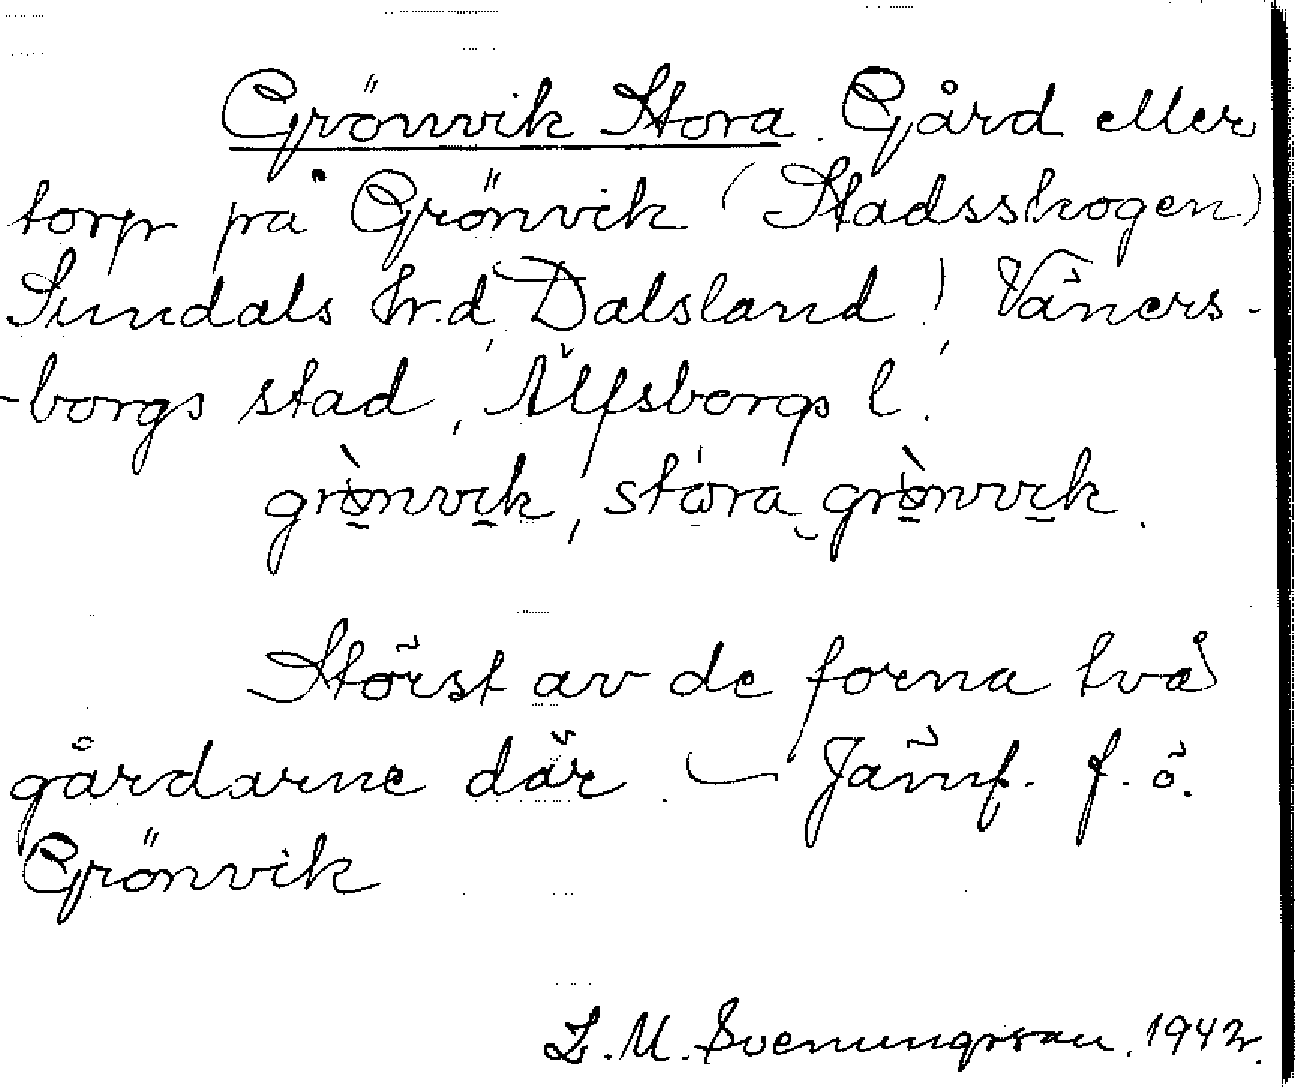 Grönvik Stora. Gård eller
torp på Grönvik (Stadsskogen)
Sundals hrd, Dalsland! Väners-
-borgs stad, Älfsborgs l.
grò̱nvi̱k, stora grò̱nvi̱k.
Störst av de forna två
gårdarne där. — Jämf. f. ö.
Grönvik
L. M. Svenungsson. 1942.